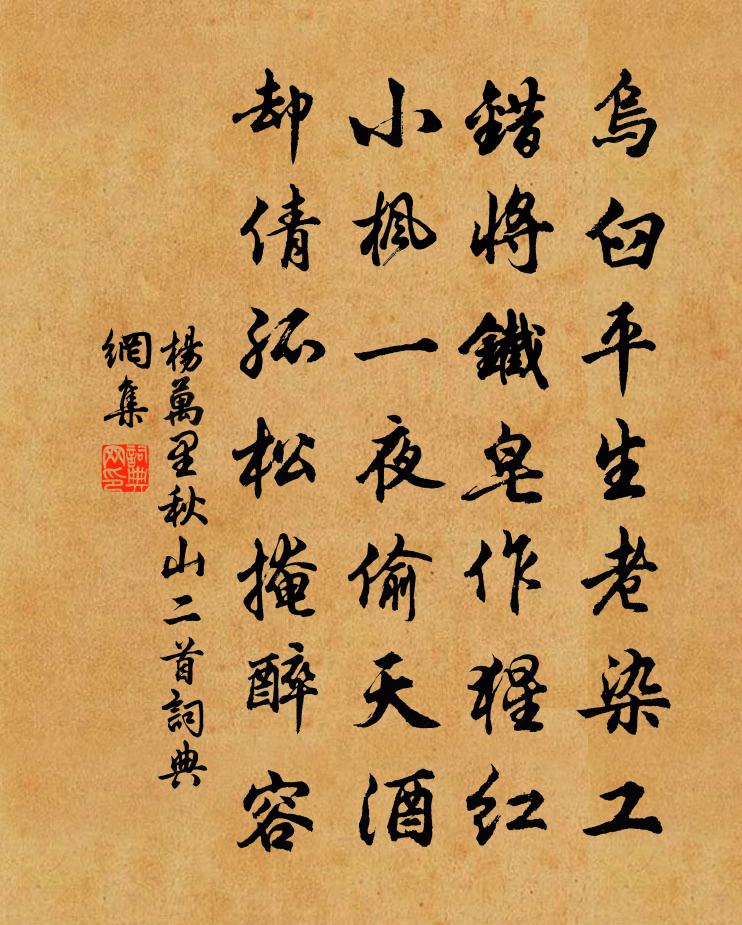 烏臼平生老染工
錯將鐵皂作猩紅
小楓一夜偷天酒
却倩孤松掩醉容
楊萬里秋山二首詞典
網集
詞典
网印